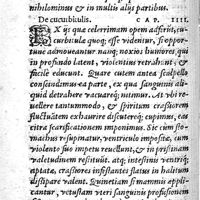 nihilominus & in multis alijs partibus.
De cucurbitulis. CAP. IIII.
EX ijs quæ celerrimam opem afferūt, cu-
curbitula quoq; esse videntur, si opportu-
nè admoueantur nanq; noxios humores, qui
in profundo latent, violentius retrahunt, &
facilè educunt. Quare cutem antea scalpello
conscindamus ea parte, ex qua sanguinis ali-
quid detrahere vacuareq; nitimur. At si euel-
lere tantummodo, & spiritum crassiorem
fluctuatem exhaurire disturbareq; cupimus,
eas citra scarificationem imponimus. Sic cum sto-
machus resupinatur, ventriculo impositæ, cum
violento suo impetu reuellunt, & in pristinam
valetudinem restituūt. atq; intestinis ventriq;
aptatæ, crassiores infestantes flatus in halitum
dissipare valent. Quinetiam si mammis appli-
cantur, vetustam veteri sanguinis profusionem